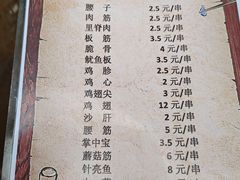 腰 子 2.5 元/串
肉 筋 2.5 元/串
里脊肉 2.5元/串
板 筋 2.5 元/串
脆 骨 4 元/串
鱿鱼板 3.5元/串
鸡 胗 2.5 元/串
鸡 心 2 元/串
鸡翅尖 3 元/串
鸡 翅 12 元/串
沙 肝 2 元/串
腰 筋 5 元/串
掌中宝 3.5元/串
蘑菇筋 6 元/串
针亮鱼 8 元/串